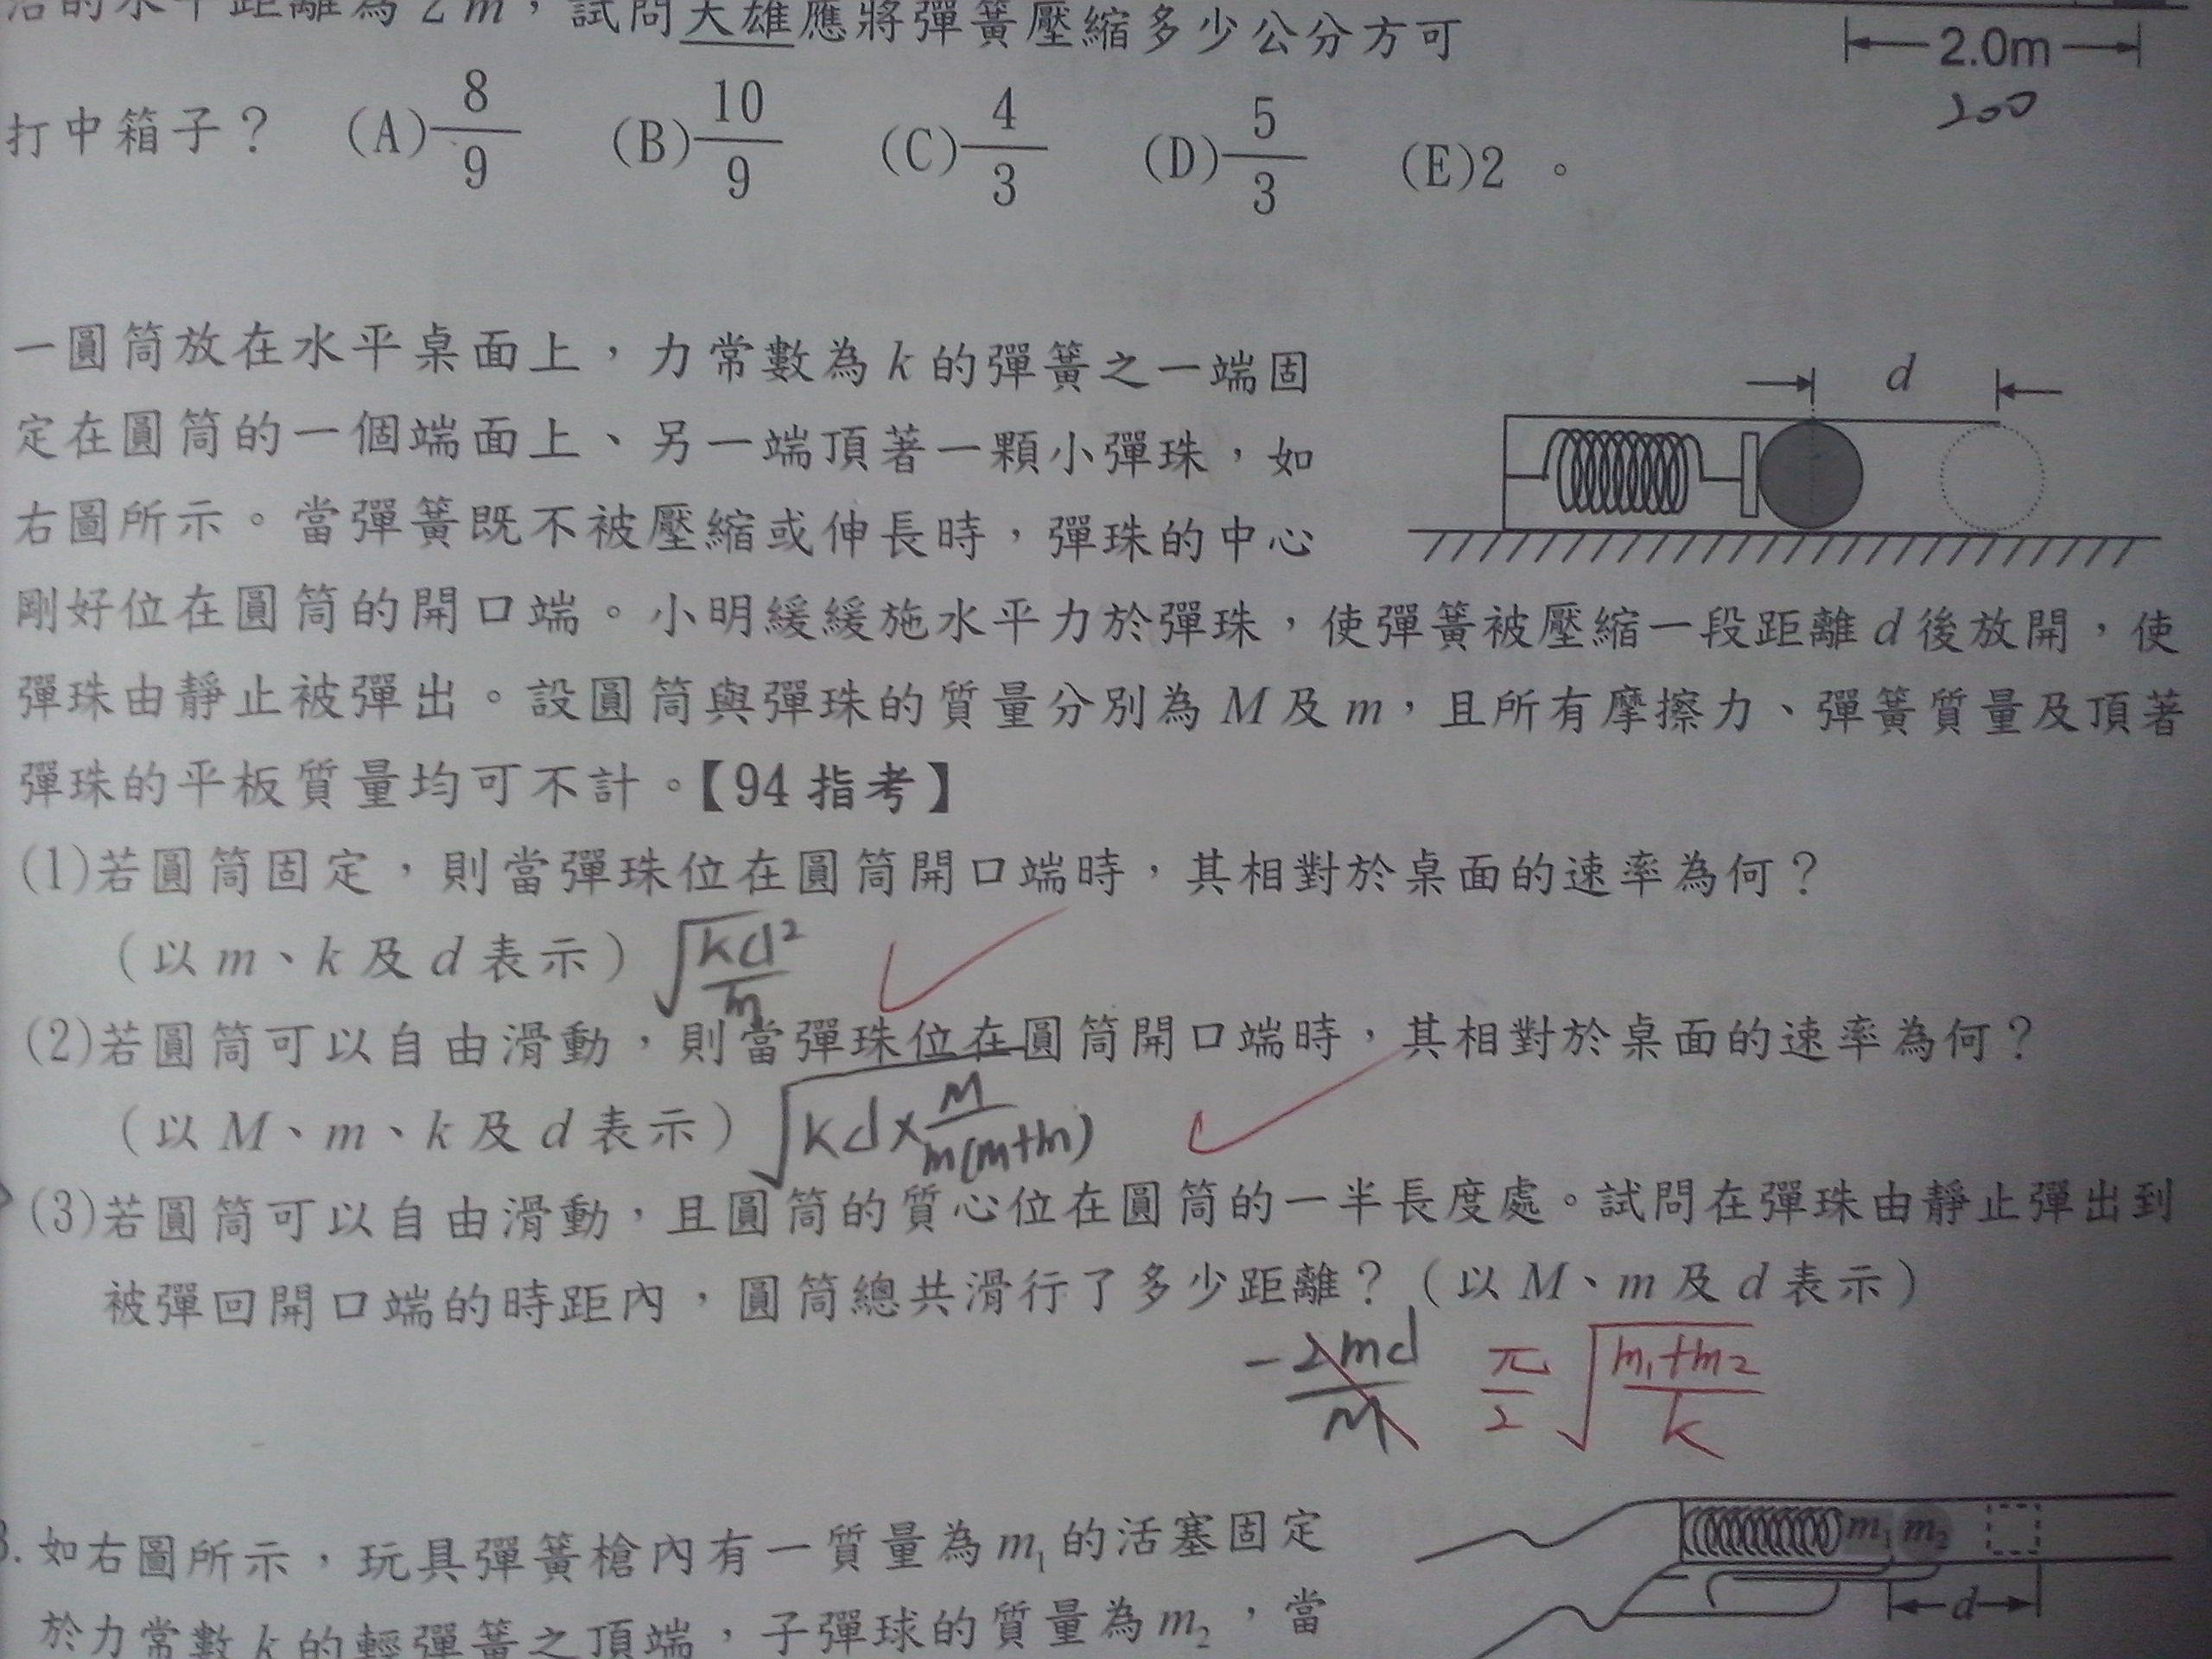 的水平距離為 2 m，試問大雄應將彈簧壓縮多少公分方可
2.0m
200
打中箱子？ (A) 8/9 (B) 10/9 (C) 4/3 (D) 5/3 (E)2 。
一圓筒放在水平桌面上，力常數為 k 的彈簧之一端固
d
定在圓筒的一個端面上、另一端頂著一顆小彈珠，如
右圖所示。當彈簧既不被壓縮或伸長時，彈珠的中心
剛好位在圓筒的開口端。小明緩緩施水平力於彈珠，使彈簧被壓縮一段距離 d 後放開，使
彈珠由靜止被彈出。設圓筒與彈珠的質量分別為 M 及 m，且所有摩擦力、彈簧質量及頂著
彈珠的平板質量均可不計。【94 指考】
(1)若圓筒固定，則當彈珠位在圓筒開口端時，其相對於桌面的速率為何？
（以 m、k 及 d 表示）√(kd²/m)
(2)若圓筒可以自由滑動，則當彈珠位在圓筒開口端時，其相對於桌面的速率為何？
（以 M、m、k 及 d 表示）√(kd×M/m(m+m))
(3)若圓筒可以自由滑動，且圓筒的質心位在圓筒的一半長度處。試問在彈珠由靜止彈出到
被彈回開口端的時距內，圓筒總共滑行了多少距離？（以 M、m 及 d 表示）
-2md/M π/2 √(m₁+m₂/k)
3.如右圖所示，玩具彈簧槍內有一質量為 m₁ 的活塞固定
m₁ m₂
d
於力常數 k 的輕彈簧之頂端，子彈球的質量為 m₂，當